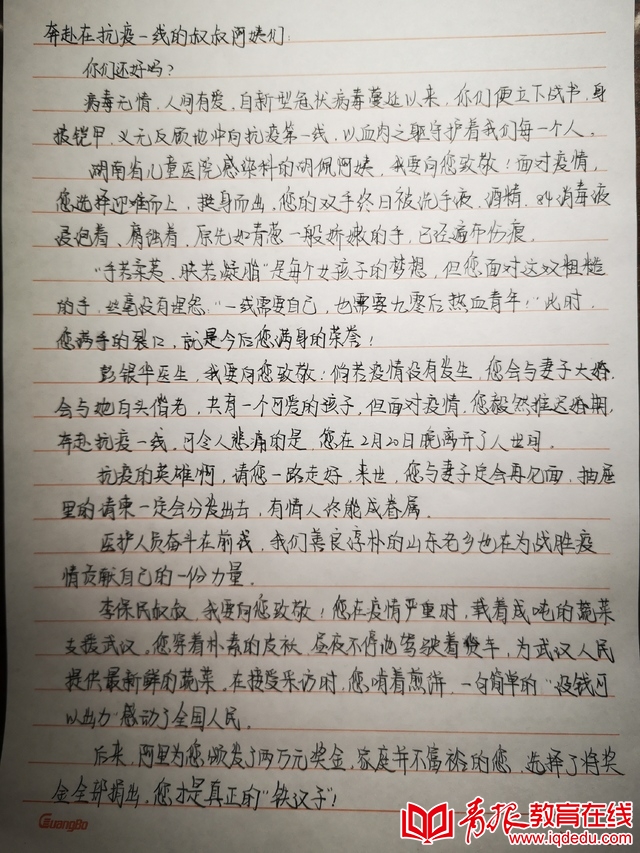 奔赴在抗疫一线的叔叔阿姨们:
你们还好吗?
病毒无情,人间有爱,自新型冠状病毒蔓延以来,你们便立下战书,身
披铠甲,义无反顾地冲向抗疫第一线,以血肉之躯守护着我们每一个人。
湖南省儿童医院感染科的胡佩阿姨,我要向您致敬!面对疫情,
您选择迎难而上,挺身而出,您的双手终日被洗手液、酒精、84消毒液
浸泡着、腐蚀着,原先如青葱一般娇嫩的手,已经遍布伤痕。
“手若柔荑,肤若凝脂”是每个女孩子的梦想,但您面对这双粗糙
的手,丝毫没有埋怨:“一线需要自己,也需要九零后热血青年!”此时,
您满手的裂口,就是今后您满身的荣誉!
彭银华医生,我要向您致敬!倘若疫情没有发生,您会与妻子大婚,
会与她白头偕老,共有一个可爱的孩子,但面对疫情,您毅然推迟婚期,
奔赴抗疫一线,可令人悲痛的是,您在2月20日晚离开了人世间。
抗疫的英雄啊,请您一路走好,来世,您与妻子定会再见面,抽屉
里的请柬一定会分发出去,有情人终能成眷属。
医护人员奋斗在前线,我们善良淳朴的山东老乡也在为战胜疫
情贡献自己的一份力量。
李保民叔叔,我要向您致敬!您在疫情严重时,载着成吨的蔬菜
支援武汉。您穿着朴素的皮袄,昼夜不停地驾驶着货车,为武汉人民
提供最新鲜的蔬菜。在接受采访时,您啃着煎饼,一句简单的“没钱可
以出力”感动了全国人民。
后来,阿里为您颁发了两万元奖金,家庭并不富裕的您,选择了将奖
金全部捐出,您才是真正的“铁汉子”!
GuangBo
青报教育在线
www.iqdedu.com